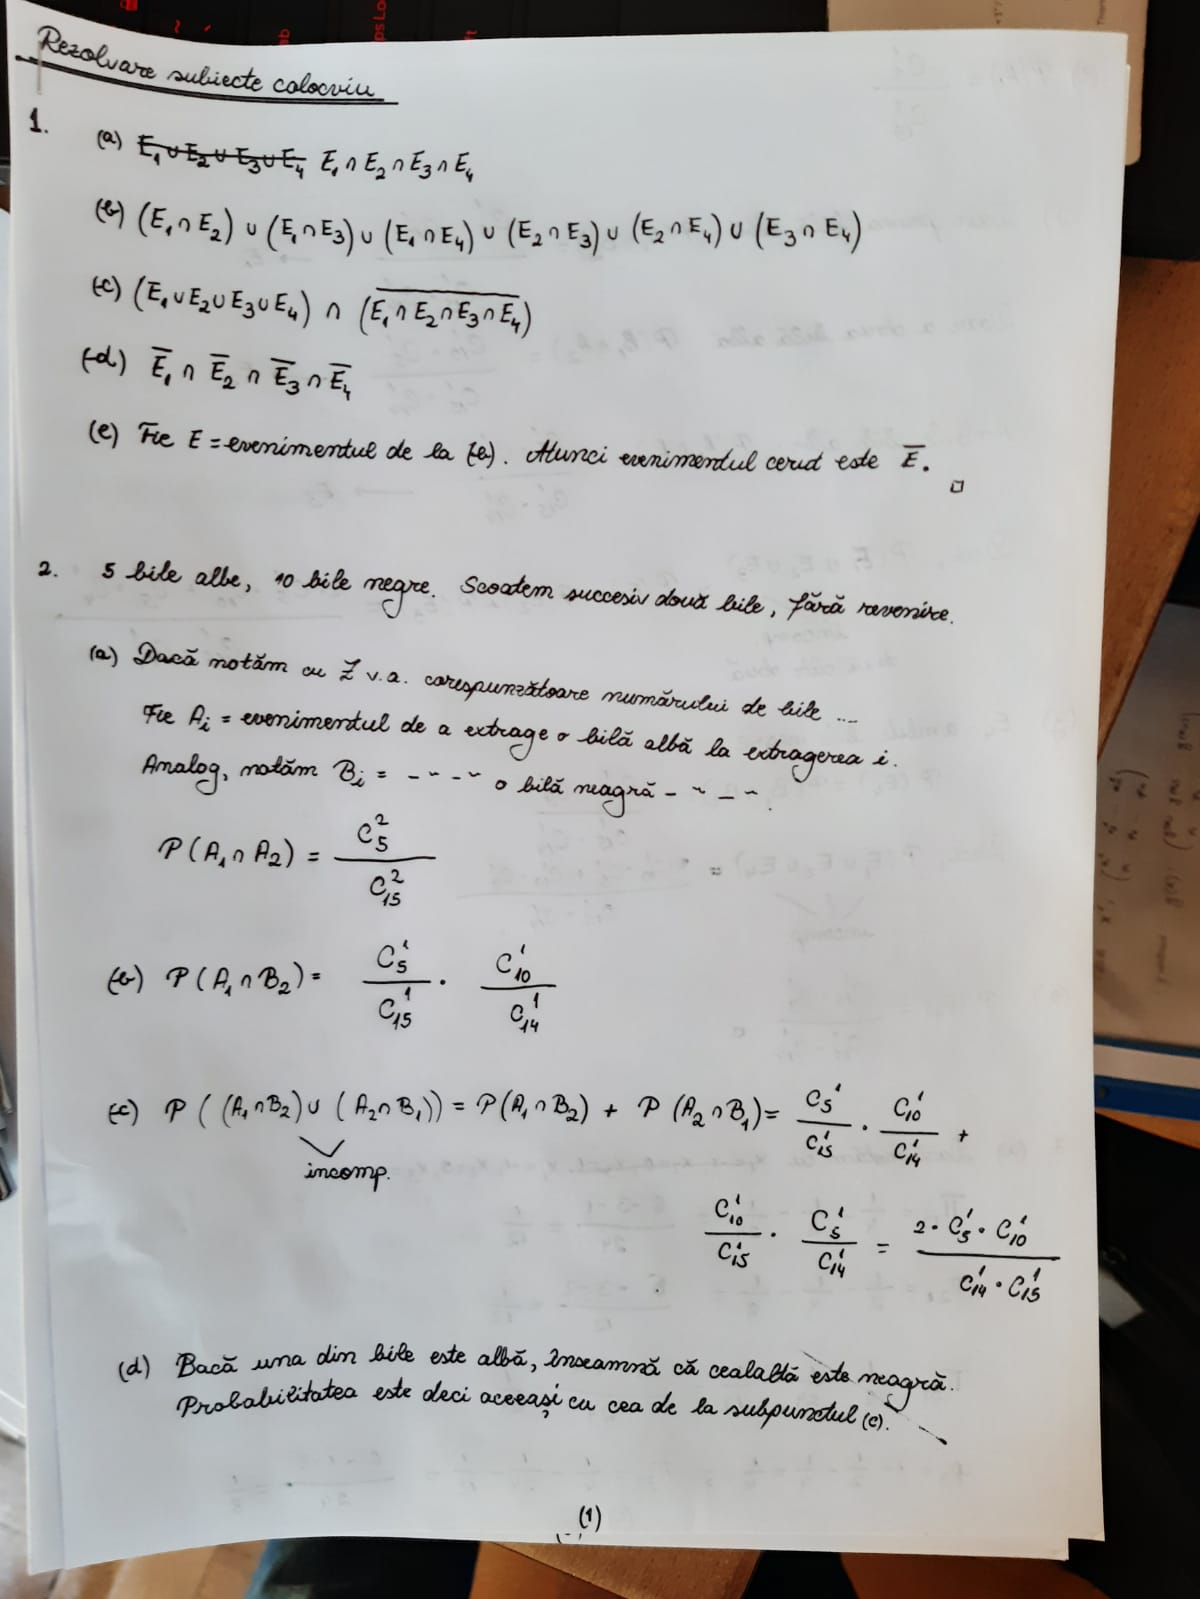 Rezolvare subiecte colocviu
1. (a) E₁ ∪ E₂ ∪ E₃ ∪ E₄ E₁ ∩ E₂ ∩ E₃ ∩ E₄
(b) (E₁ ∩ E₂) ∪ (E₁ ∩ E₃) ∪ (E₁ ∩ E₄) ∪ (E₂ ∩ E₃) ∪ (E₂ ∩ E₄) ∪ (E₃ ∩ E₄)
(c) (E₁ ∪ E₂ ∪ E₃ ∪ E₄) ∩ (\overline{E₁ ∩ E₂ ∩ E₃ ∩ E₄})
(d) Ē₁ ∩ Ē₂ ∩ Ē₃ ∩ Ē₄
(e) Fie E = evenimentul de la (b). Atunci evenimentul cerut este Ē. □
2. 5 bile albe, 10 bile negre. Scoatem succesiv două bile, fără revenire.
(a) Dacă notăm cu Z v.a. corespunzătoare numărului de bile ...
Fie Aᵢ = evenimentul de a extrage o bilă albă la extragerea i.
Analog, notăm Bᵢ = - " - " o bilă neagră - " - ".
P(A₁ ∩ A₂) = C₅² / C₁₅²
(b) P(A₁ ∩ B₂) = C₅¹ / C₁₅¹ · C₁₀¹ / C₁₄¹
(c) P((A₁ ∩ B₂) ∪ (A₂ ∩ B₁)) = P(A₁ ∩ B₂) + P(A₂ ∩ B₁) = C₅¹ / C₁₅¹ · C₁₀¹ / C₁₄¹ +
incomp.
C₁₀¹ / C₁₅¹ · C₅¹ / C₁₄¹ = 2 · C₅¹ · C₁₀¹ / C₁₄¹ · C₁₅¹
(d) Dacă una din bile este albă, înseamnă că cealaltă este neagră.
Probabilitatea este deci aceeași cu cea de la subpunctul (c).
(1)